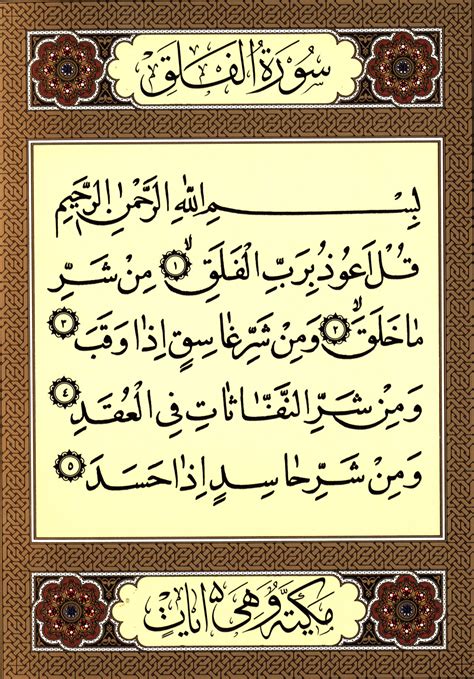 سُورَةُ الْفَلَقِ
بِسْمِ اللّٰهِ الرَّحْمٰنِ الرَّح۪يمِ
قُلْ اَعُوذُ بِرَبِّ الْفَلَقِۙ ﴿١﴾ مِنْ شَرِّ
مَا خَلَقَۙ ﴿٢﴾ وَمِنْ شَرِّ غَاسِقٍ اِذَا وَقَبَ ﴿٣﴾
وَمِنْ شَرِّ النَّفَّاثَاتِ فِي الْعُقَدِ ﴿٤﴾
وَمِنْ شَرِّ حَاسِدٍ اِذَا حَسَدَ ﴿٥﴾
مَكِّيَّةٌ وَهِىَ ٥ اٰيَاتٍ